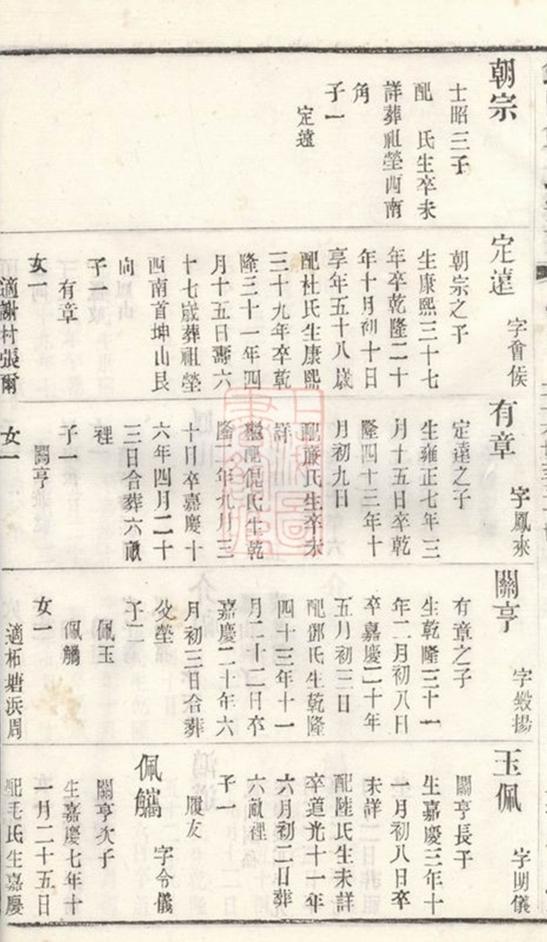 朝宗
士昭三子
配　氏生卒未
詳葬祖塋西南
角
子一
定遠
定遠　字會侯
朝宗之子
生康熙三十七
年卒乾隆二十
年十月初十日
享年五十八歲
配杜氏生康熙
三十九年卒乾
隆三十一年四
月十五日壽六
十七歲葬祖塋
西南首坤山艮
向
子一
有章
女一
適謝村張爾
有章　字鳳來
定遠之子
生雍正七年三
月十五日卒乾
隆四十三年十
月初九日
配嚴氏生卒未
詳
繼配倪氏生乾
隆　年九月三
十日卒嘉慶十
六年四月二十
三日合葬六畝
裡
子一
關亨
女一
關亨　字毅揚
有章之子
生乾隆三十一
年二月初八日
卒嘉慶二十年
五月初三日
配鄧氏生乾隆
四十三年十一
月二十二日卒
嘉慶二十年六
月初三日合葬
父塋
子二
佩玉
佩觿
女一
適柘塘浜周
玉佩　字明儀
關亨長子
生嘉慶三年十
一月初八日卒
未詳
配陸氏生未詳
卒道光十一年
六月初二日葬
六畝裡
子一
履友
佩觿　字令儀
關亨次子
生嘉慶七年十
一月二十五日
配毛氏生嘉慶